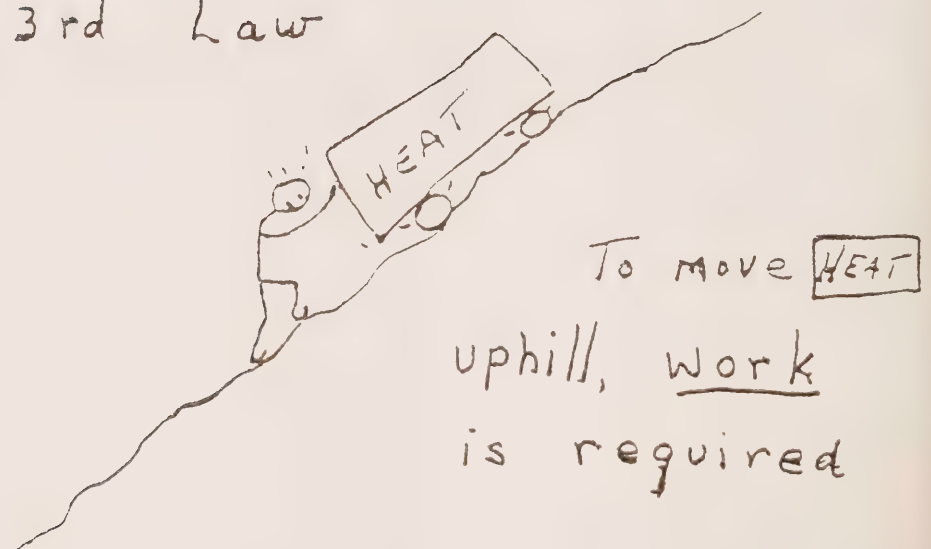 3rd Law
HEAT
To move HEAT
uphill, work
is required